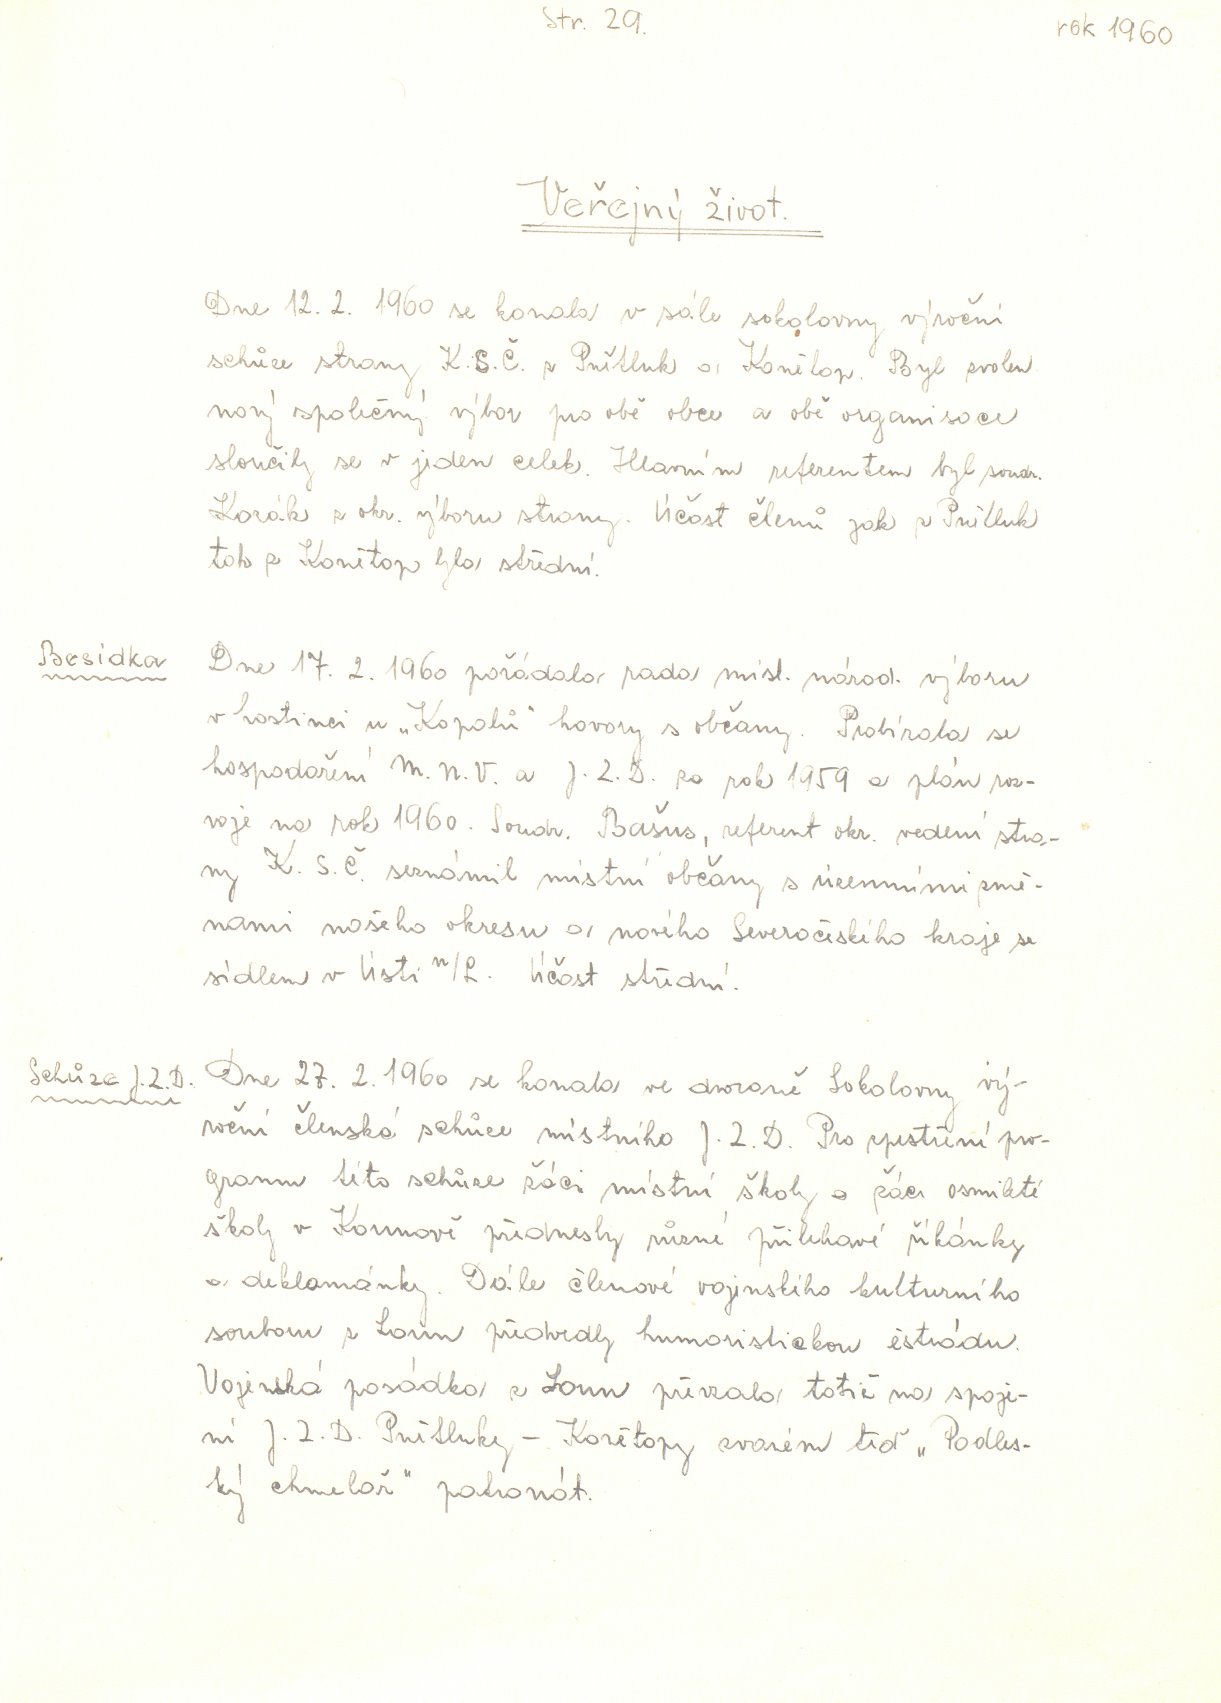 Str. 29.
rok 1960
Veřejný život.
Dne 12. 2. 1960 se konala v sále sokolovny výroční
schůze strany K.S.Č. z Pnětluk a Konětop. Byl zvolen
nový společný výbor pro obě obce a obě organisace
sloučily se v jeden celek. Hlavním referentem byl soudr.
Kozák z okr. výboru strany. Účast členů jak z Pnětluk
tak z Konětop byla střední.
Besídka
Dne 17. 2. 1960 pořádala rada míst. národ. výboru
v hostinci u „Kopalů“ hovory s občany. Probírala se
hospodaření M.N.V. a J.Z.D. za rok 1959 a plán roz-
voje na rok 1960. Soudr. Bašus, referent okr. vedení stra-
ny K.S.Č. seznámil místní občany s územními změ-
nami našeho okresu a nového Severočeského kraje se
sídlem v Ústí n/L. Účast střední.
Schůze J.Z.D.
Dne 27. 2. 1960 se konala ve dvoraně Sokolovny vý-
roční členská schůze místního J.Z.D. Pro zpestření pro-
gramu této schůze žáci místní školy a žáci osmileté
školy v Kounově přednesly různé přiléhavé říkánky
a deklamánky. Dále členové vojenského kulturního
souboru z Loun předvedly humoristickou éstrádu.
Vojenská posádka z Loun převzala totiž na spoje-
ní J.Z.D. Pnětluky – Konětopy zvaném teď „Podles-
ký chmelař“ patronát.